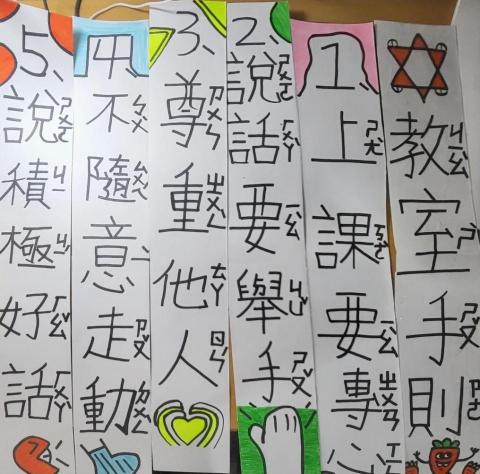 教室手則
1、上課要專心
2、說話要舉手
3、尊重他人
4、不隨意走動
5、說積極好話